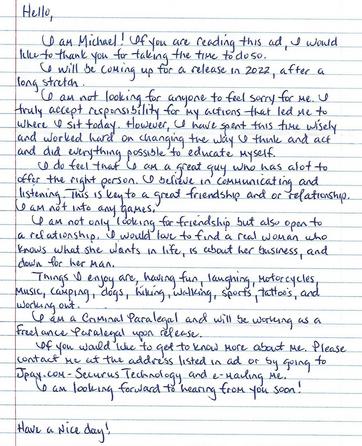 Hello,
I am Michael! If you are reading this ad, I would
like to thank you for taking the time to do so.
I will be coming up for a release in 2022, after a
long stretch.
I am not looking for anyone to feel sorry for me. I
truly accept responsibility for my actions that led me to
where I sit today. However, I have spent this time wisely
and worked hard on changing the way I think and act
and did everything possible to educate myself.
I do feel that I am a great guy who has alot to
offer the right person. I believe in communicating and
listening. This is key to a great friendship and or relationship.
I am not into any games.
I am not only looking for friendship but also open to
a relationship. I would love to find a real woman who
knows what she wants in life, is about her business, and
down for her man.
Things I enjoy are, having fun, laughing, motorcycles,
music, camping, dogs, hiking, walking, sports, tattoo's, and
working out.
I am a Criminal Paralegal and will be working as a
freelance Paralegal upon release.
If you would like to get to know more about me. Please
contact me at the address listed in ad or by going to
Jpay.com - Securus Technology and e-mailing me.
I am looking forward to hearing from you soon!
Have a Nice day!